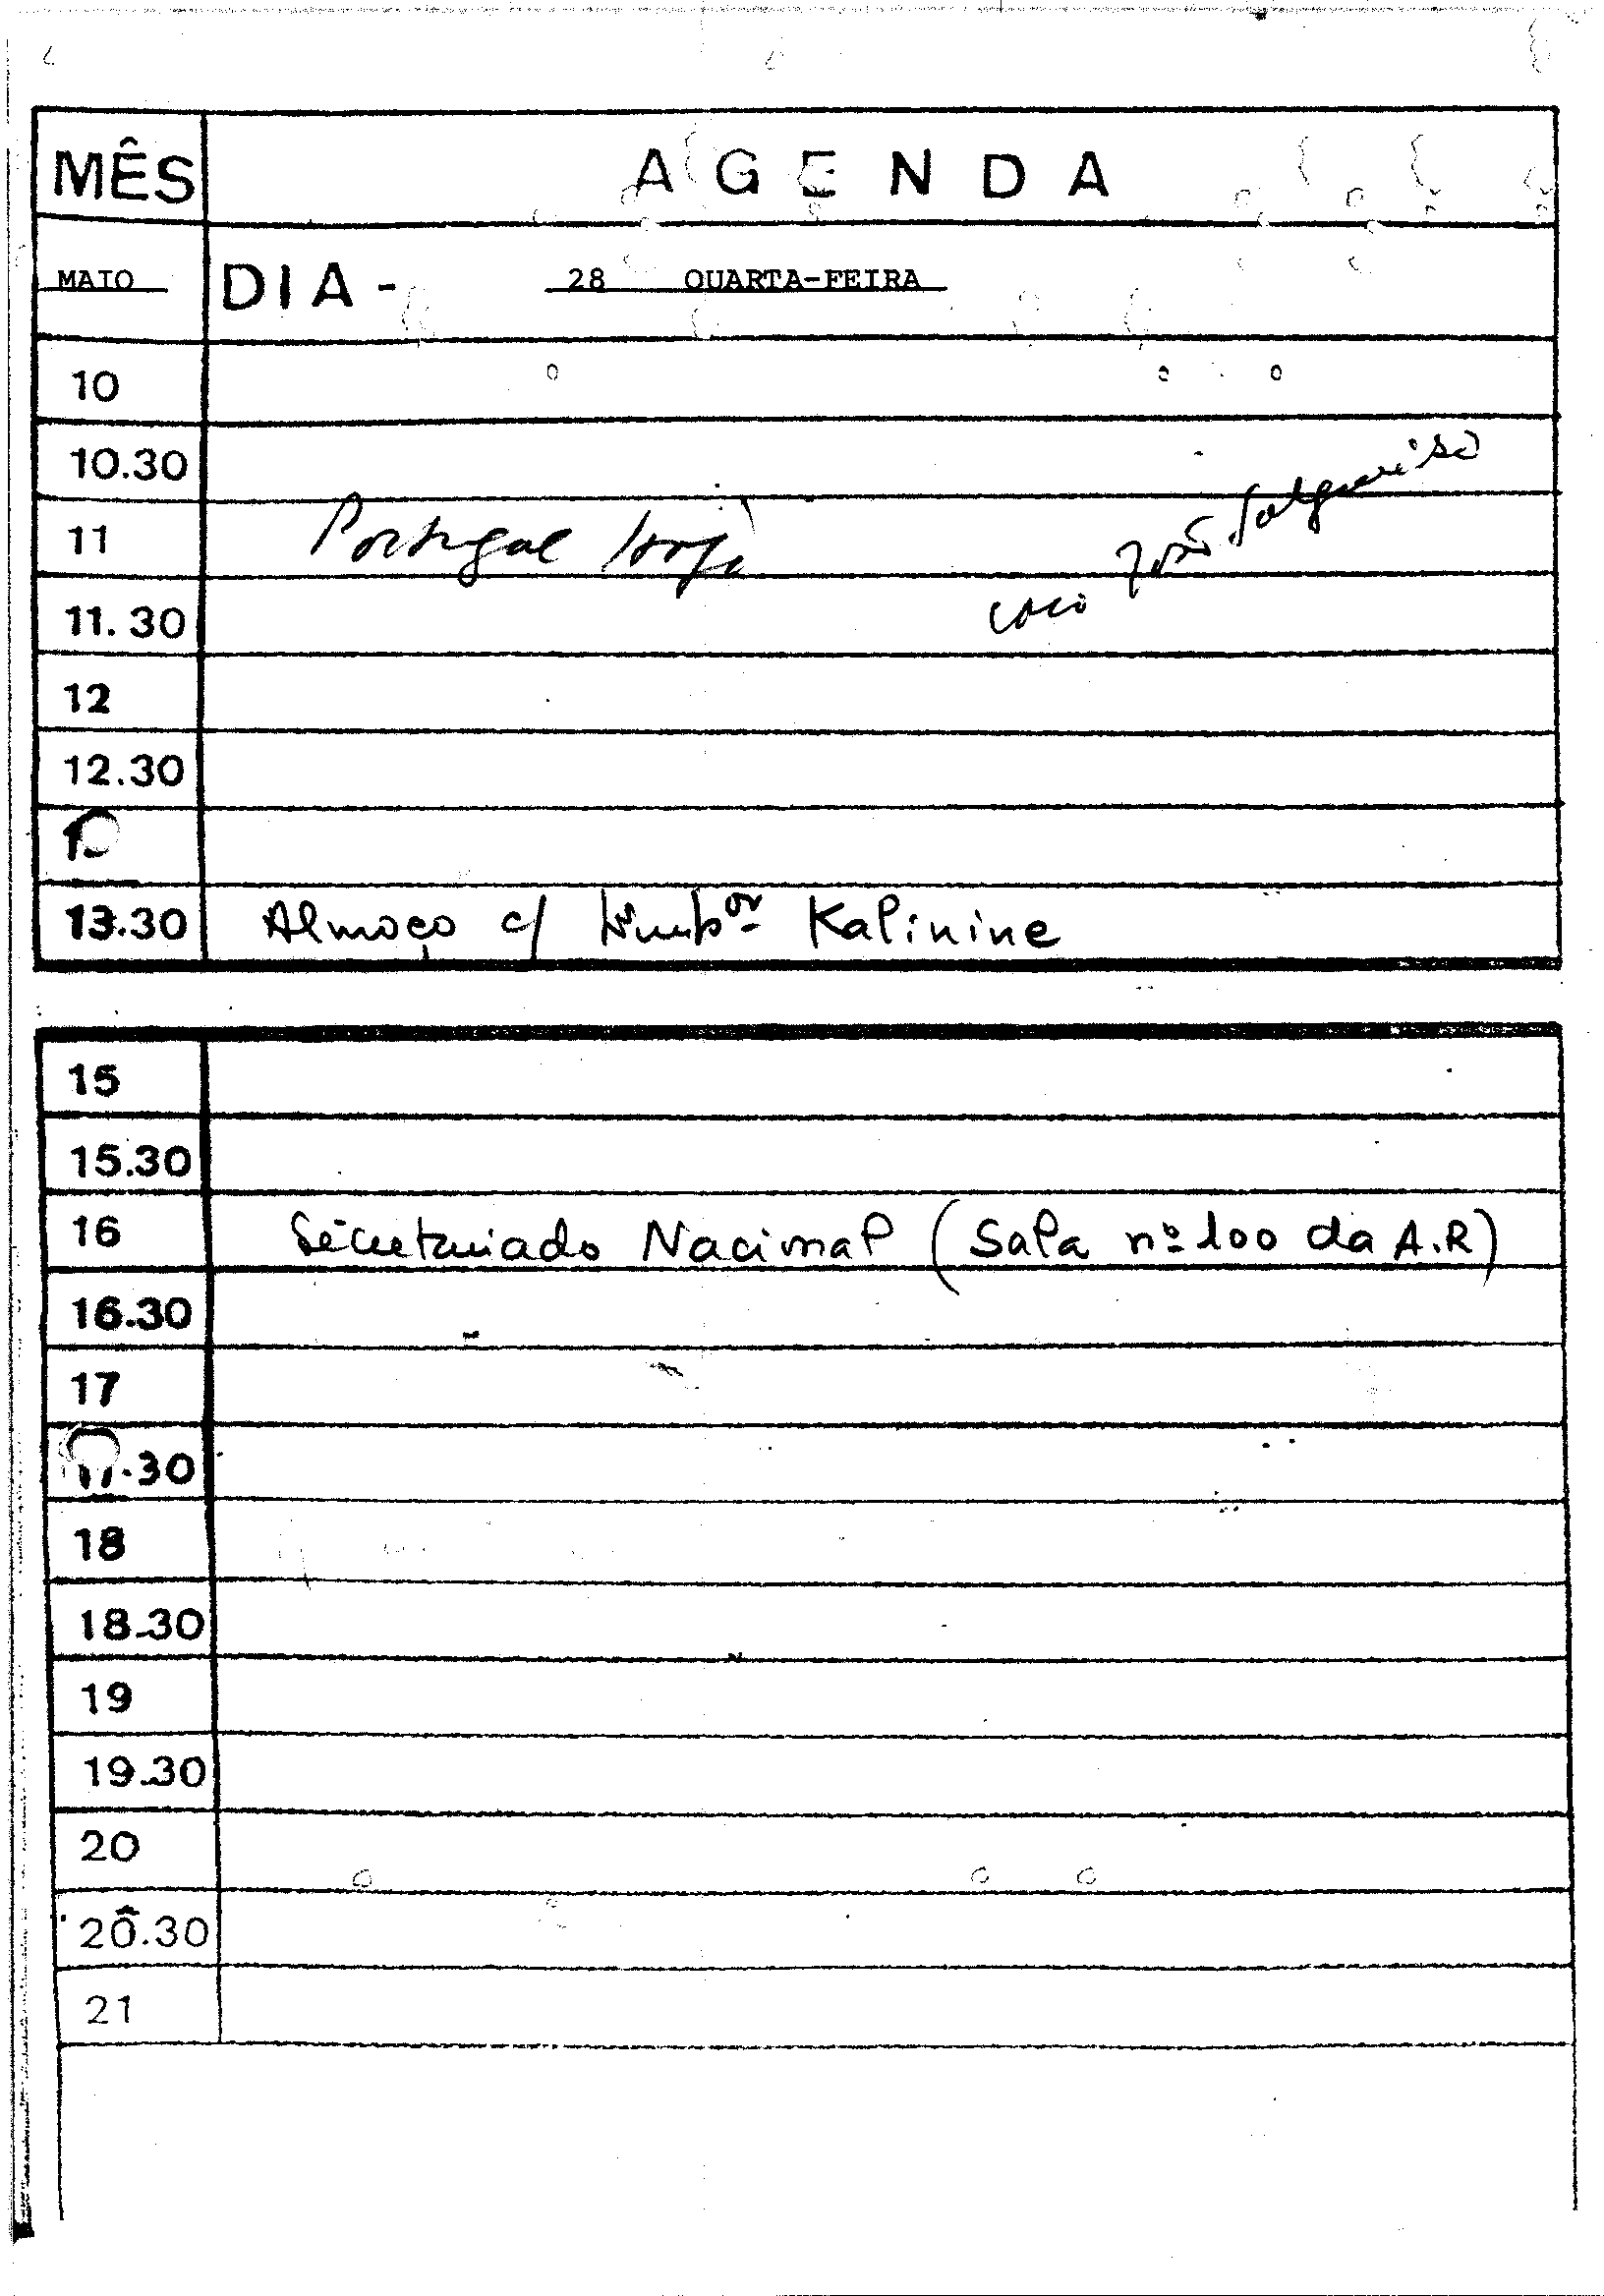 MÊS AGENDA
MAIO DIA - 28 QUARTA-FEIRA
10
10.30
João Salgueiro
11 Portugal
11.30
12
12.30
13.30 Almoço c/ Kalinine
15
15.30
16 Secretariado Nacional (Sala nº 100 da A.R)
16.30
17
17.30
18
18.30
19
19.30
20
20.30
21